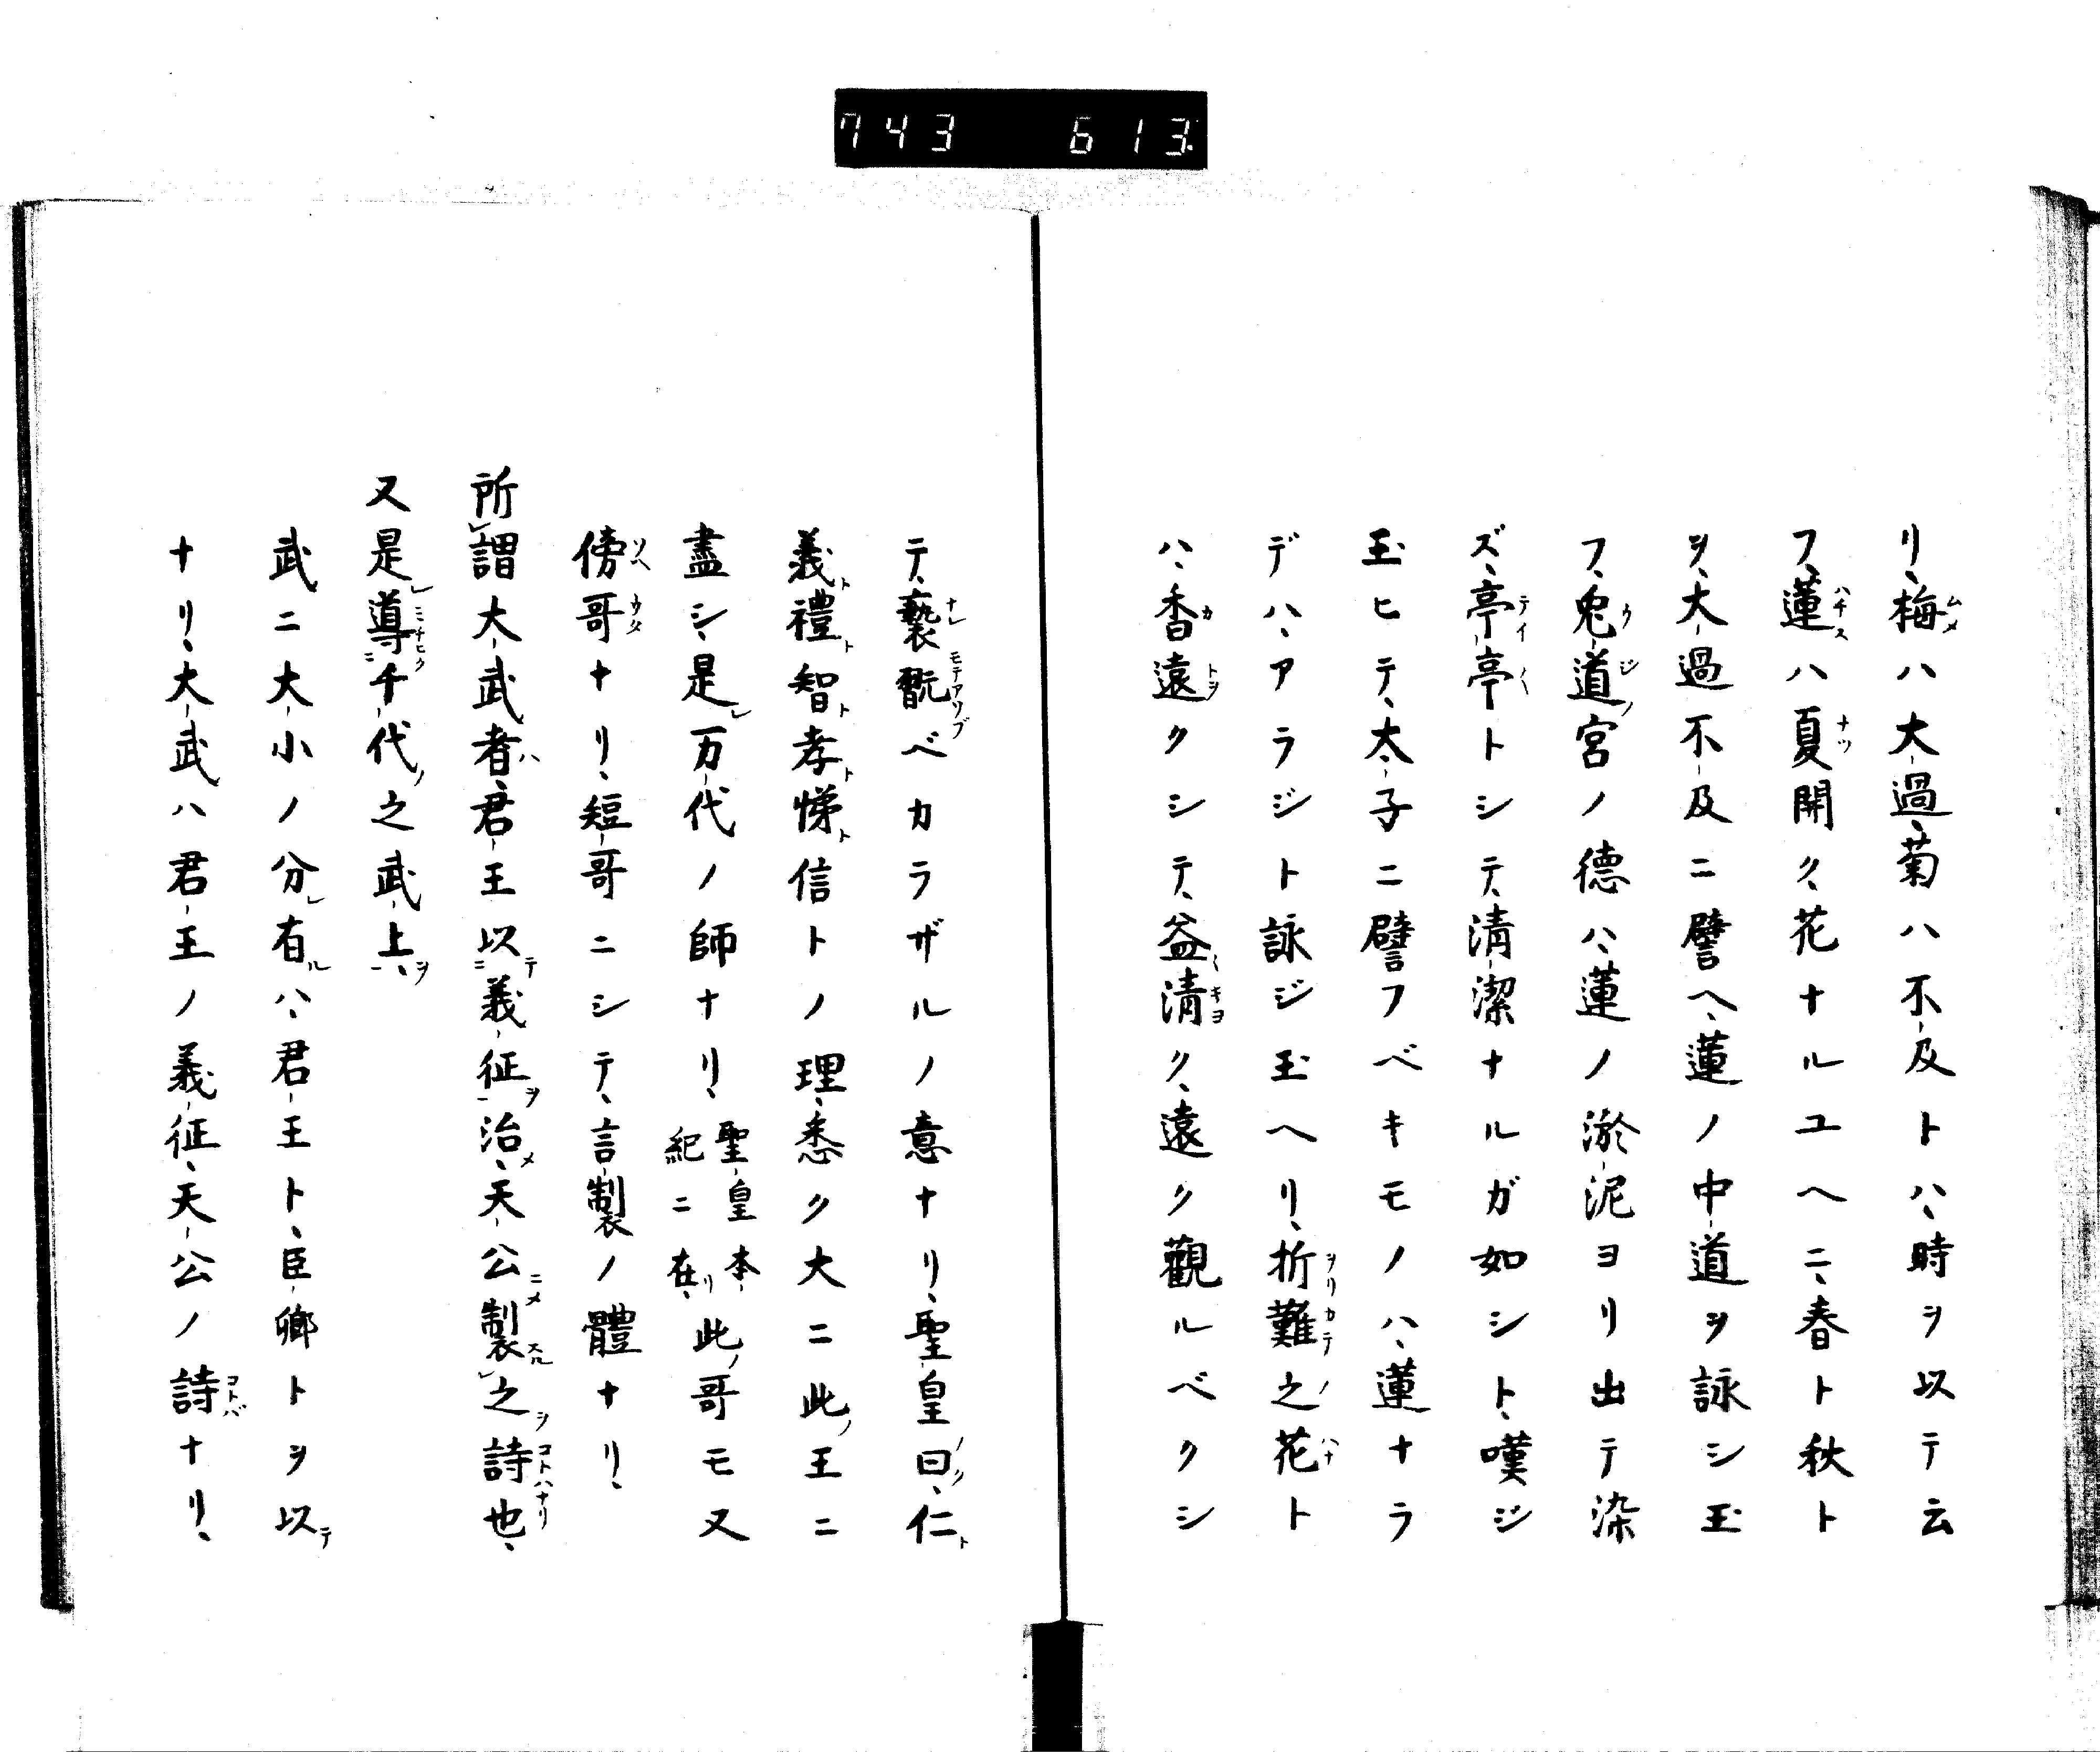 743 613
リ、梅ハ大過、菊ハ不及トハ、時ヲ以テ云
フ、蓮ハ夏開ク、花ナルユヘニ、春ト秋ト
ヲ、大過不及ニ譬ヘ、蓮ノ中道ヲ詠シ玉
フ、兎道宮ノ德ハ、蓮ノ淤泥ヨリ出テ染
ズ、亭亭トシテ、清潔ナルガ如シト、嘆ジ
玉ヒテ、太子ニ譬フベキモノハ、蓮ナラ
デハ、アラジト詠ジ玉ヘリ、折難之花ト
ハ、香遠クシテ、益清ク、遠ク觀ルベクシ
テ、褻翫ベカラザルノ意ナリ、聖皇曰、仁
義禮智孝悌信トノ理、悉ク大ニ此王ニ
盡シ、是万代ノ師ナリ、聖皇本紀ニ在、此哥モ又
傍哥ナリ、短哥ニシテ、言製ノ體ナリ、
所謂大武者、君王以義征治、天公製之詩也、
又是導千代之武上、
武ニ大小ノ分有ハ、君王ト、臣鄉トヲ以
ナリ、大武ハ君王ノ義征、天公ノ詩ナリ、